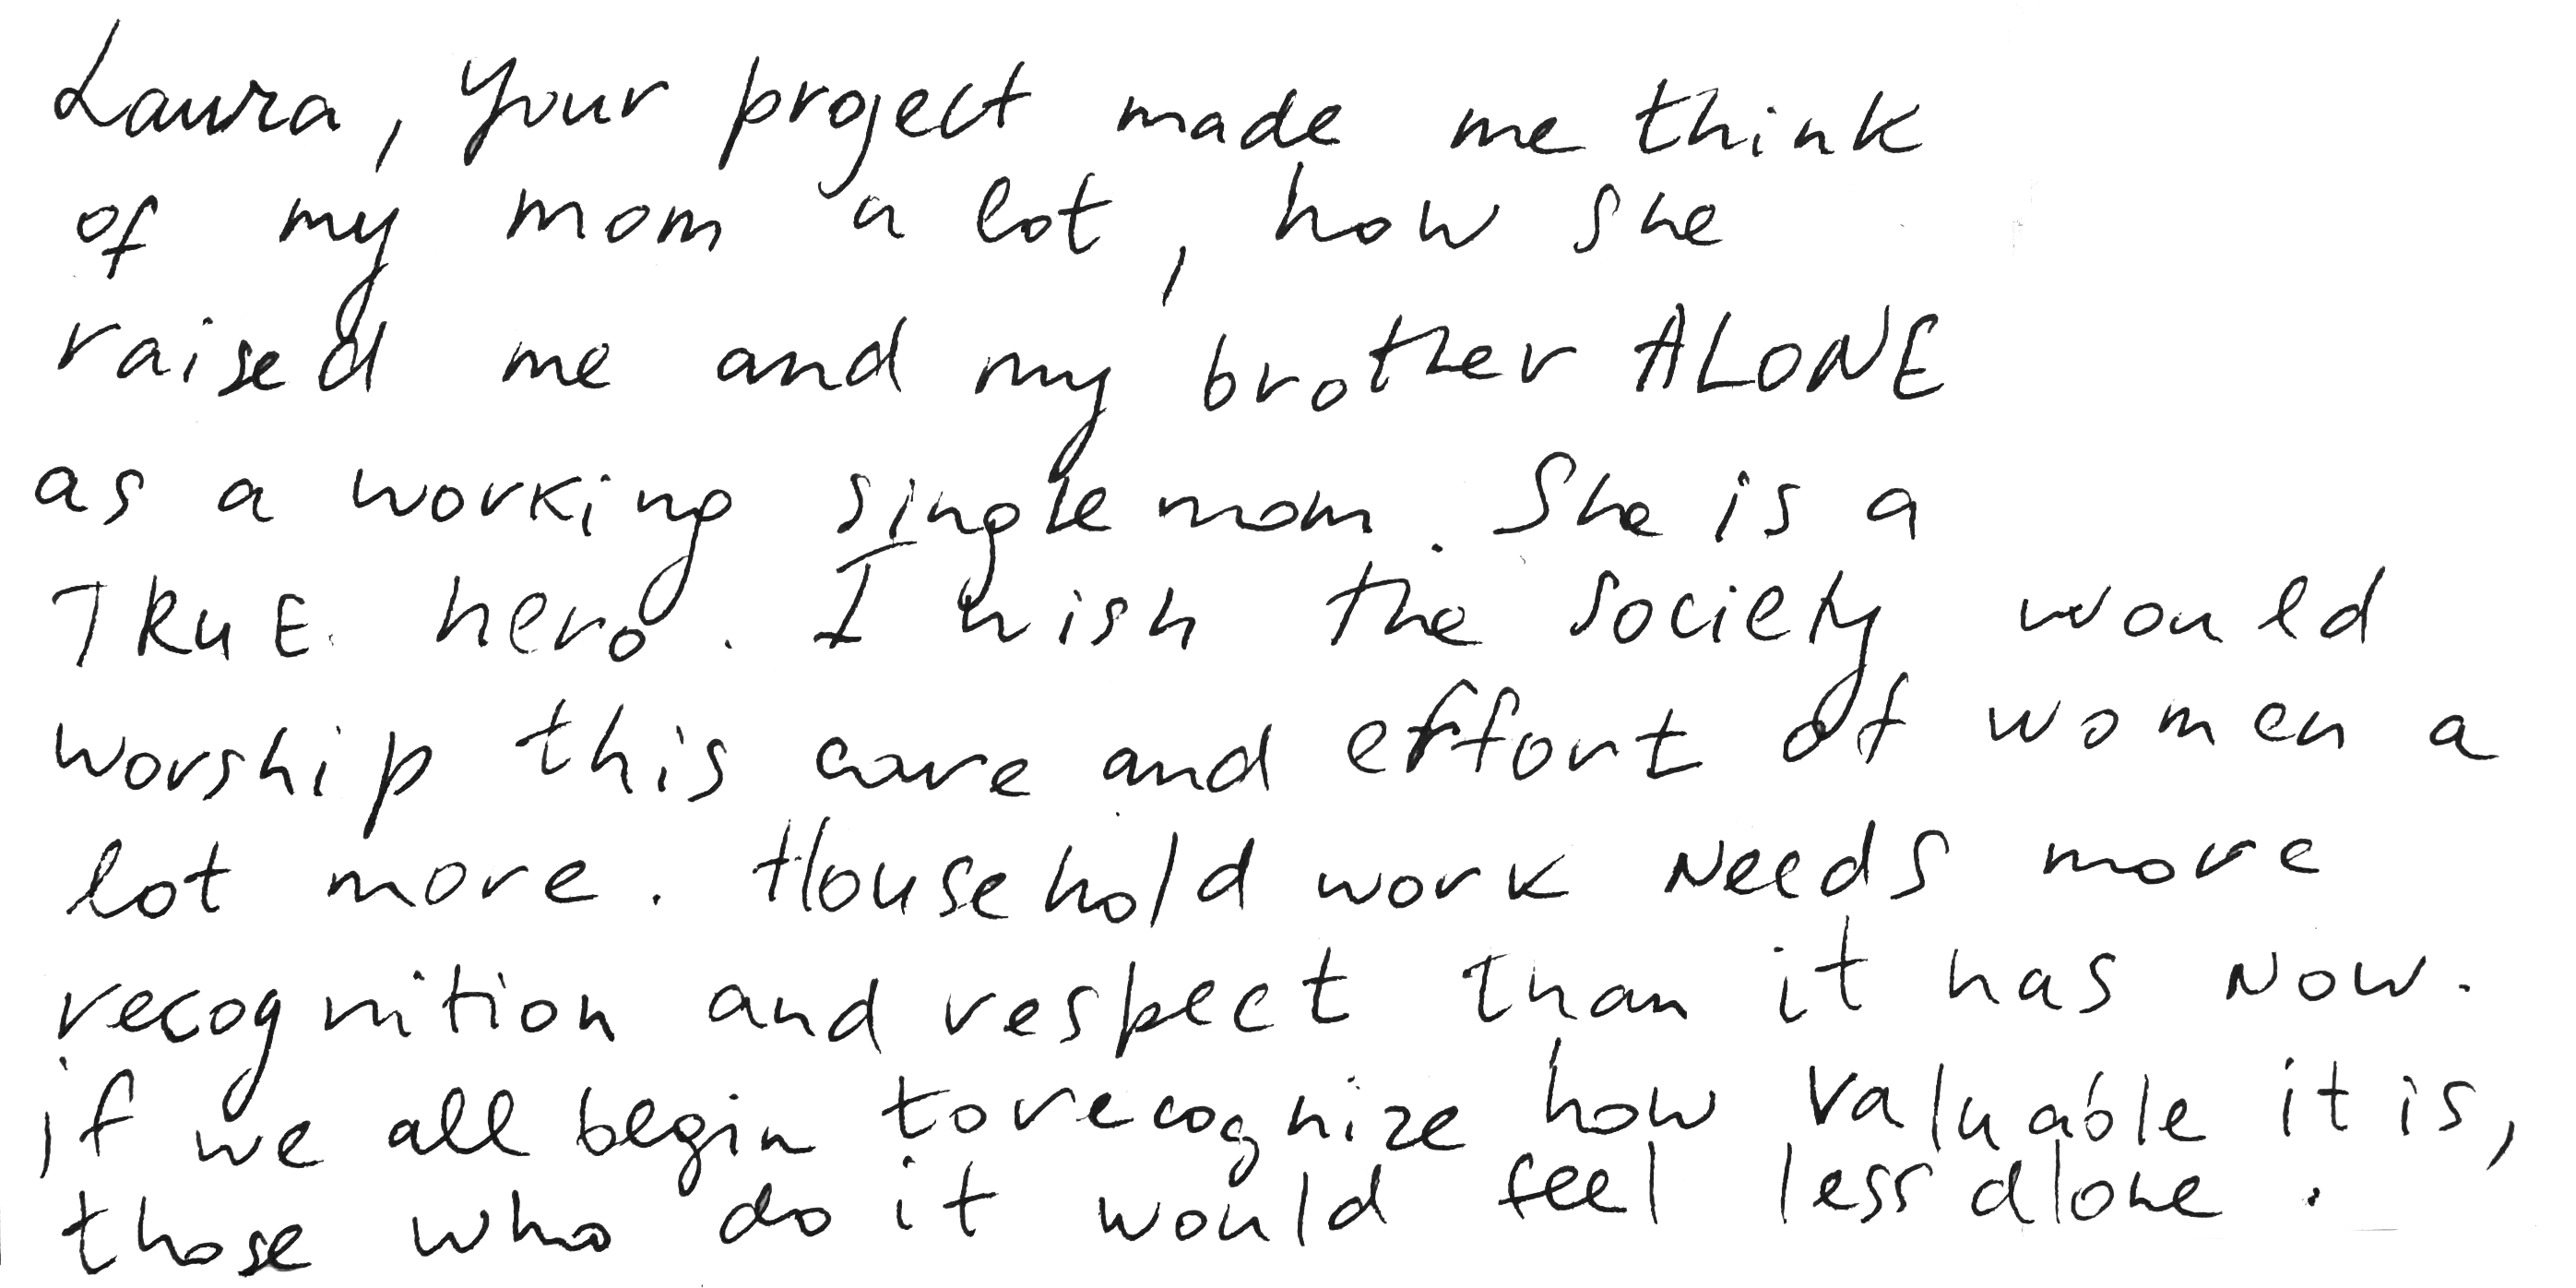 Laura, Your project made me think
of my mom a lot, how she
raised me and my brother ALONE
as a working single mom. She is a
TRUE hero. I wish the society would
worship this care and effort of women a
lot more. Household work needs more
recognition and respect than it has now.
if we all begin to recognize how valuable it is,
those who do it would feel less alone.